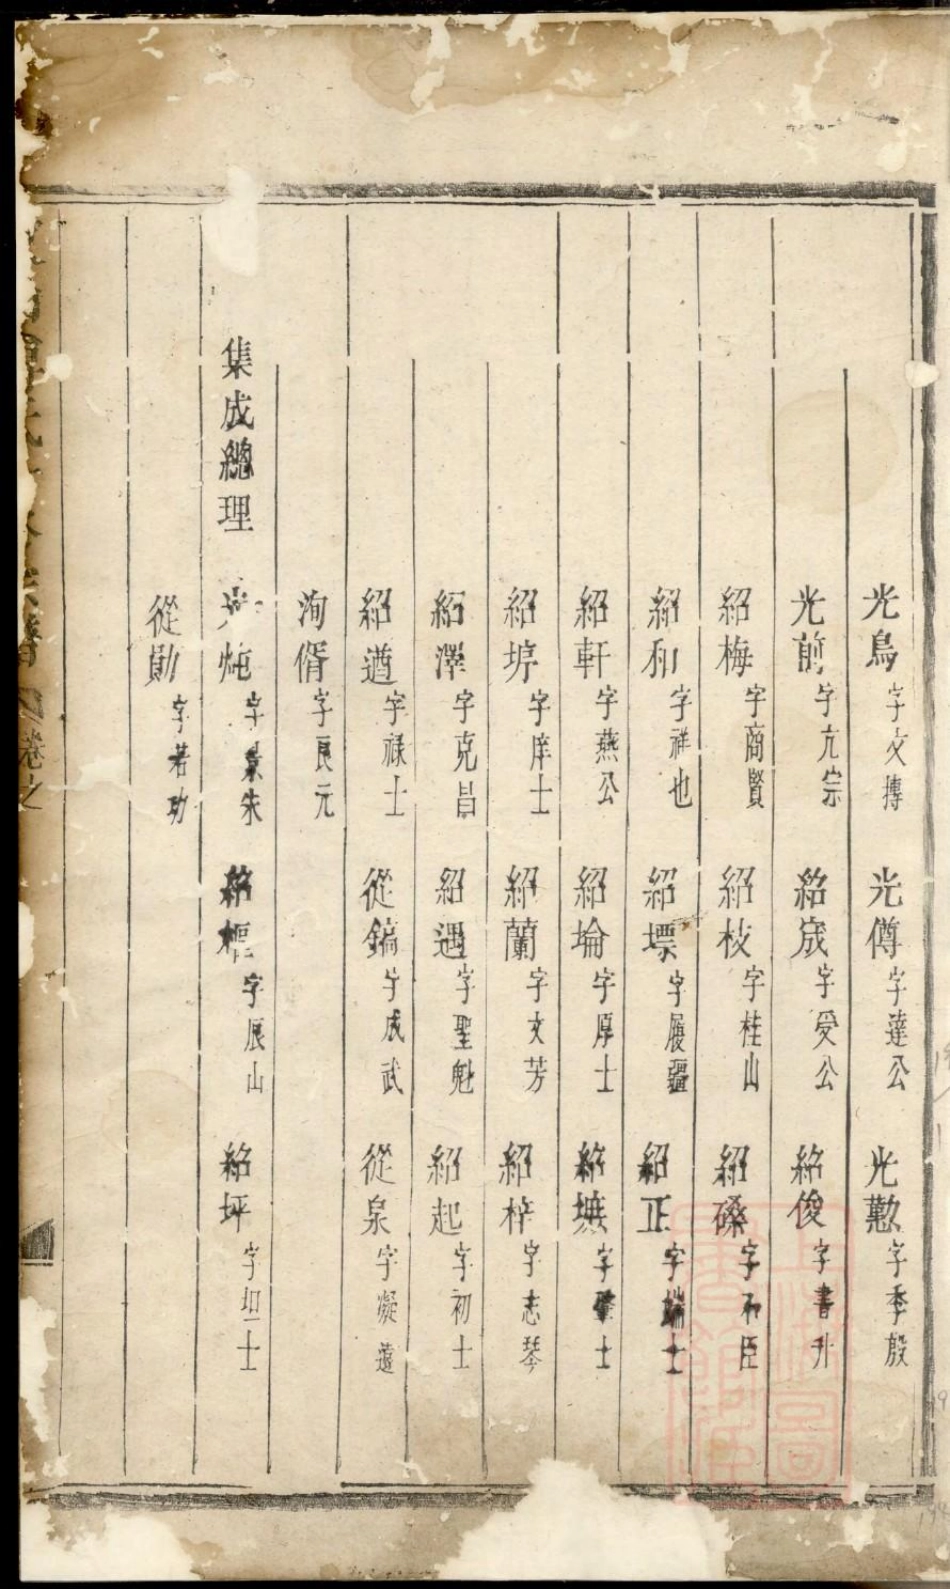 光鳥 字文摶 光傳 字達公 光懃 字季殷
光前 字亢宗 紹宬 字受公 紹俊 字書升
紹梅 字商賢 紹枝 字桂山 紹磉 字不臣
紹和 字祥也 紹墂 字履疆 紹正 字端士
紹軒 字燕公 紹埨 字厚士 紹墲 字士
紹垶 字庠士 紹蘭 字文芳 紹梓 字志琴
紹澤 字克昌 紹遇 字聖魁 紹起 字初士
紹遒 字祿士 從鎬 字成武 從泉 字凝薳
洵偦 字良元
集成總理 光炮 字朱 紹樞 字辰山 紹坪 字坦士
從勛 字若功
卷之